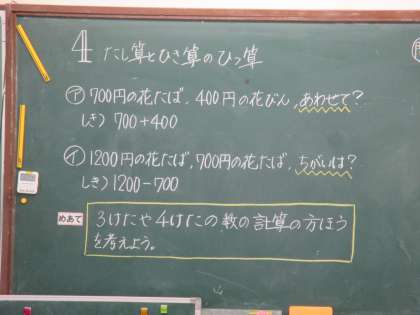 4 たし算とひき算のひっ算
㋐ 700円の花たば, 400円の花びん, あわせて?
しき) 700+400
㋑ 1200円の花たば, 700円の花たば, ちがいは?
しき) 1200-700
めあて
3けたや4けたの数の計算の方ほう
を考えよう。